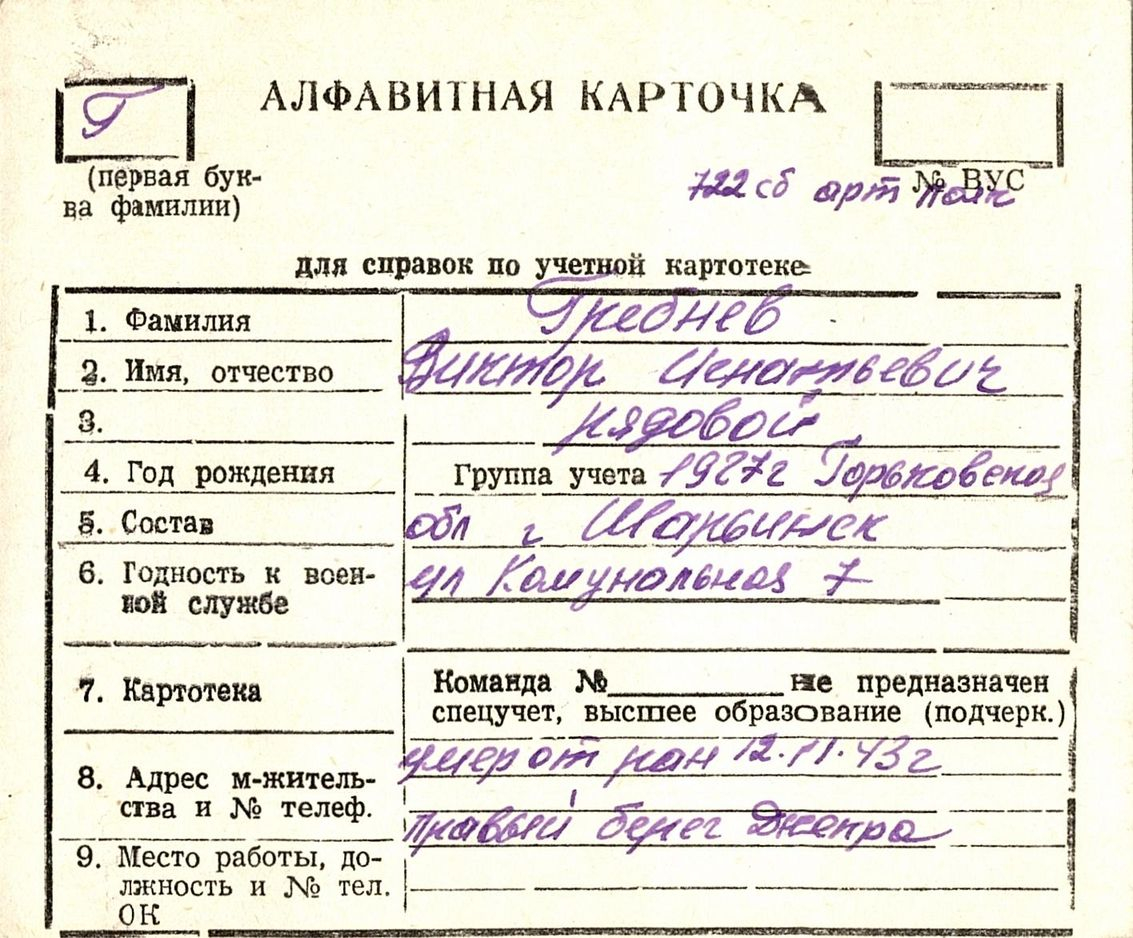 Г
АЛФАВИТНАЯ КАРТОЧКА
(первая бук-
ва фамилии)
№ ВУС
722 сб арт полк
для справок по учетной картотеке
1. Фамилия Гребнев
2. Имя, отчество Виктор Игнатьевич
3. рядовой
4. Год рождения Группа учета 1927г Горьковская
5. Состав обл г Шарьинск
6. Годность к воен- ул Комунальная 7
ной службе
7. Картотека
Команда №________ не предназначен
спецучет, высшее образование (подчерк.)
умер от ран 12.11.43г
8. Адрес м-житель-
ства и № телеф.
правый берег Днепра
9. Место работы, до-
лжность и № тел.
ОК